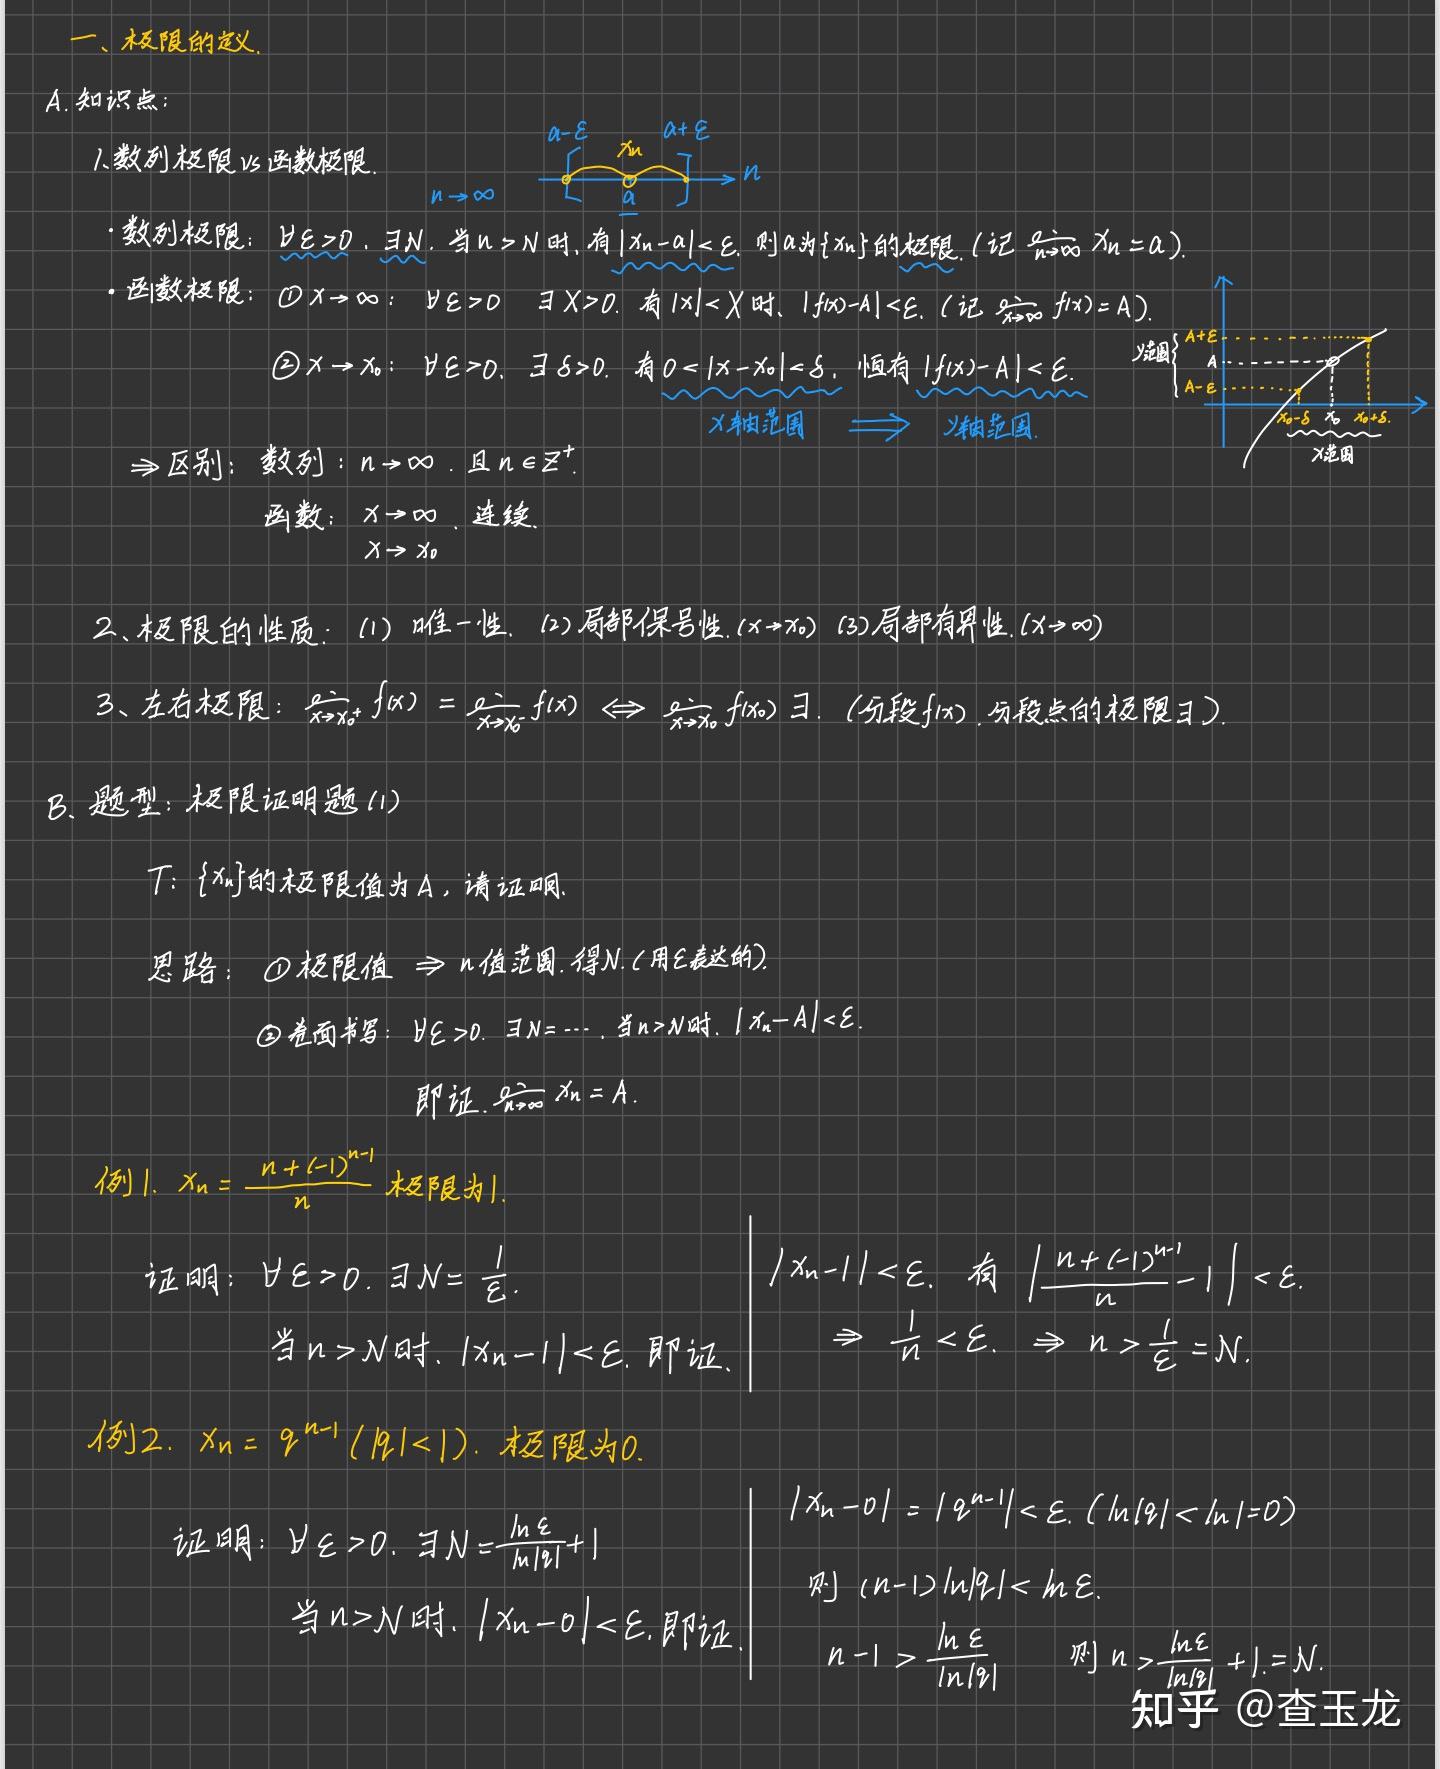 一、极限的定义.
A. 知识点:
1、数列极限 vs 函数极限.
a-ε xn a+ε
n→∞ a n
· 数列极限: ∀ε>0. ∃N. 当n>N时, 有|xn-a|<ε. 则a为{xn}的极限. (记 lim n→∞ xn=a).
· 函数极限: ① x→∞: ∀ε>0 ∃X>0. 有|x|<X时、|f(x)-A|<ε. (记 lim x→∞ f(x)=A).
② x→x₀: ∀ε>0. ∃δ>0. 有0<|x-x₀|<δ. 恒有|f(x)-A|<ε.
x轴范围 ⟹ y轴范围.
y范围 A+ε A A-ε
x₀-δ x₀ x₀+δ.
x范围
⇒区别: 数列: n→∞. 且n∈Z⁺.
函数: x→∞. 连续.
x→x₀
2、极限的性质: (1) 唯一性. (2)局部保号性.(x→x₀) (3)局部有界性.(x→∞)
3、左右极限: lim x→x₀⁺ f(x) = lim x→x₀⁻ f(x) ⟺ lim x→x₀ f(x₀) ∃. (分段f(x). 分段点的极限∃).
B、题型: 极限证明题(1)
T: {xn}的极限值为A, 请证明.
思路: ①极限值 ⇒ n值范围.得N.(用ε表达的).
②卷面书写: ∀ε>0. ∃N=···. 当n>N时. |xn-A|<ε.
即证. lim n→∞ xn=A.
例1. xn = (n+(-1)^(n-1))/n 极限为1.
证明: ∀ε>0. ∃N= 1/ε.
当n>N时、|xn-1|<ε. 即证、
|xn-1|<ε. 有 |(n+(-1)^(n-1))/n - 1| < ε.
⇒ 1/n < ε. ⇒ n > 1/ε = N.
例2. xn = q^(n-1) (|q|<1). 极限为0.
证明: ∀ε>0. ∃N = lnε/ln|q| + 1
当n>N时. |xn-0|<ε. 即证.
|xn-0| = |q^(n-1)|<ε. (ln|q|<ln1=0)
则 (n-1)ln|q|<lnε.
n-1 > lnε/ln|q| 则 n > lnε/ln|q| +1.=N.
知乎 @查玉龙